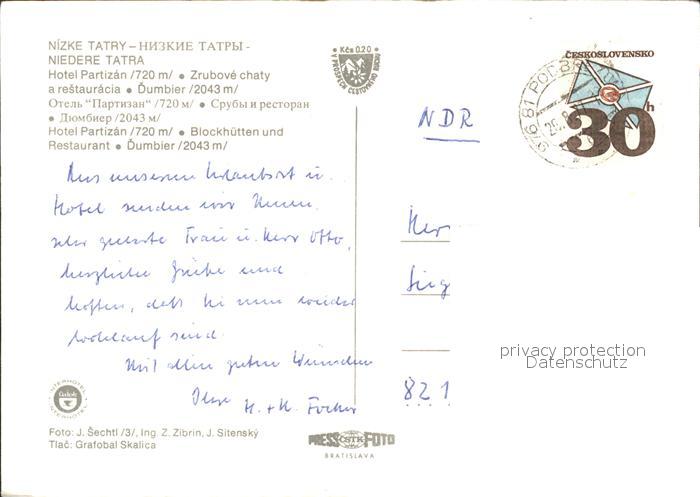 NÍZKE TATRY – НИЗКИЕ ТАТРЫ -
NIEDERE TATRA
Hotel Partizán /720 m/ • Zrubové chaty
a reštaurácia • Ďumbier /2043 m/
Отель "Партизан" /720 м/ • Срубы и ресторан
• Дюмбиер /2043 м/
Hotel Partizán /720 m/ • Blockhütten und
Restaurant • Ďumbier /2043 m/
Kčs 0.20
V PROSPECH CESTOVNÉHO RUCHU
ČESKOSLOVENSKO
30 h
976 81 PODBR
NDR
Aus unserem Urlaubsort u.
Hotel senden wir Ihnen,
sehr geehrte Frau u. Herr Otto,
herzliche Grüße und
hoffen, daß Sie nun wieder
wohlauf sind.
Mit allen guten Wünschen
Ihre H. + H.
Herr
Ing
821
privacy protection
Datenschutz
INTERHOTEL
Čedok
INTERHOTEL
Foto: J. Šechtl /3/, Ing. Z. Zibrin, J. Sitenský
Tlač: Grafobal Skalica
PRESS ČSTK FOTO
BRATISLAVA